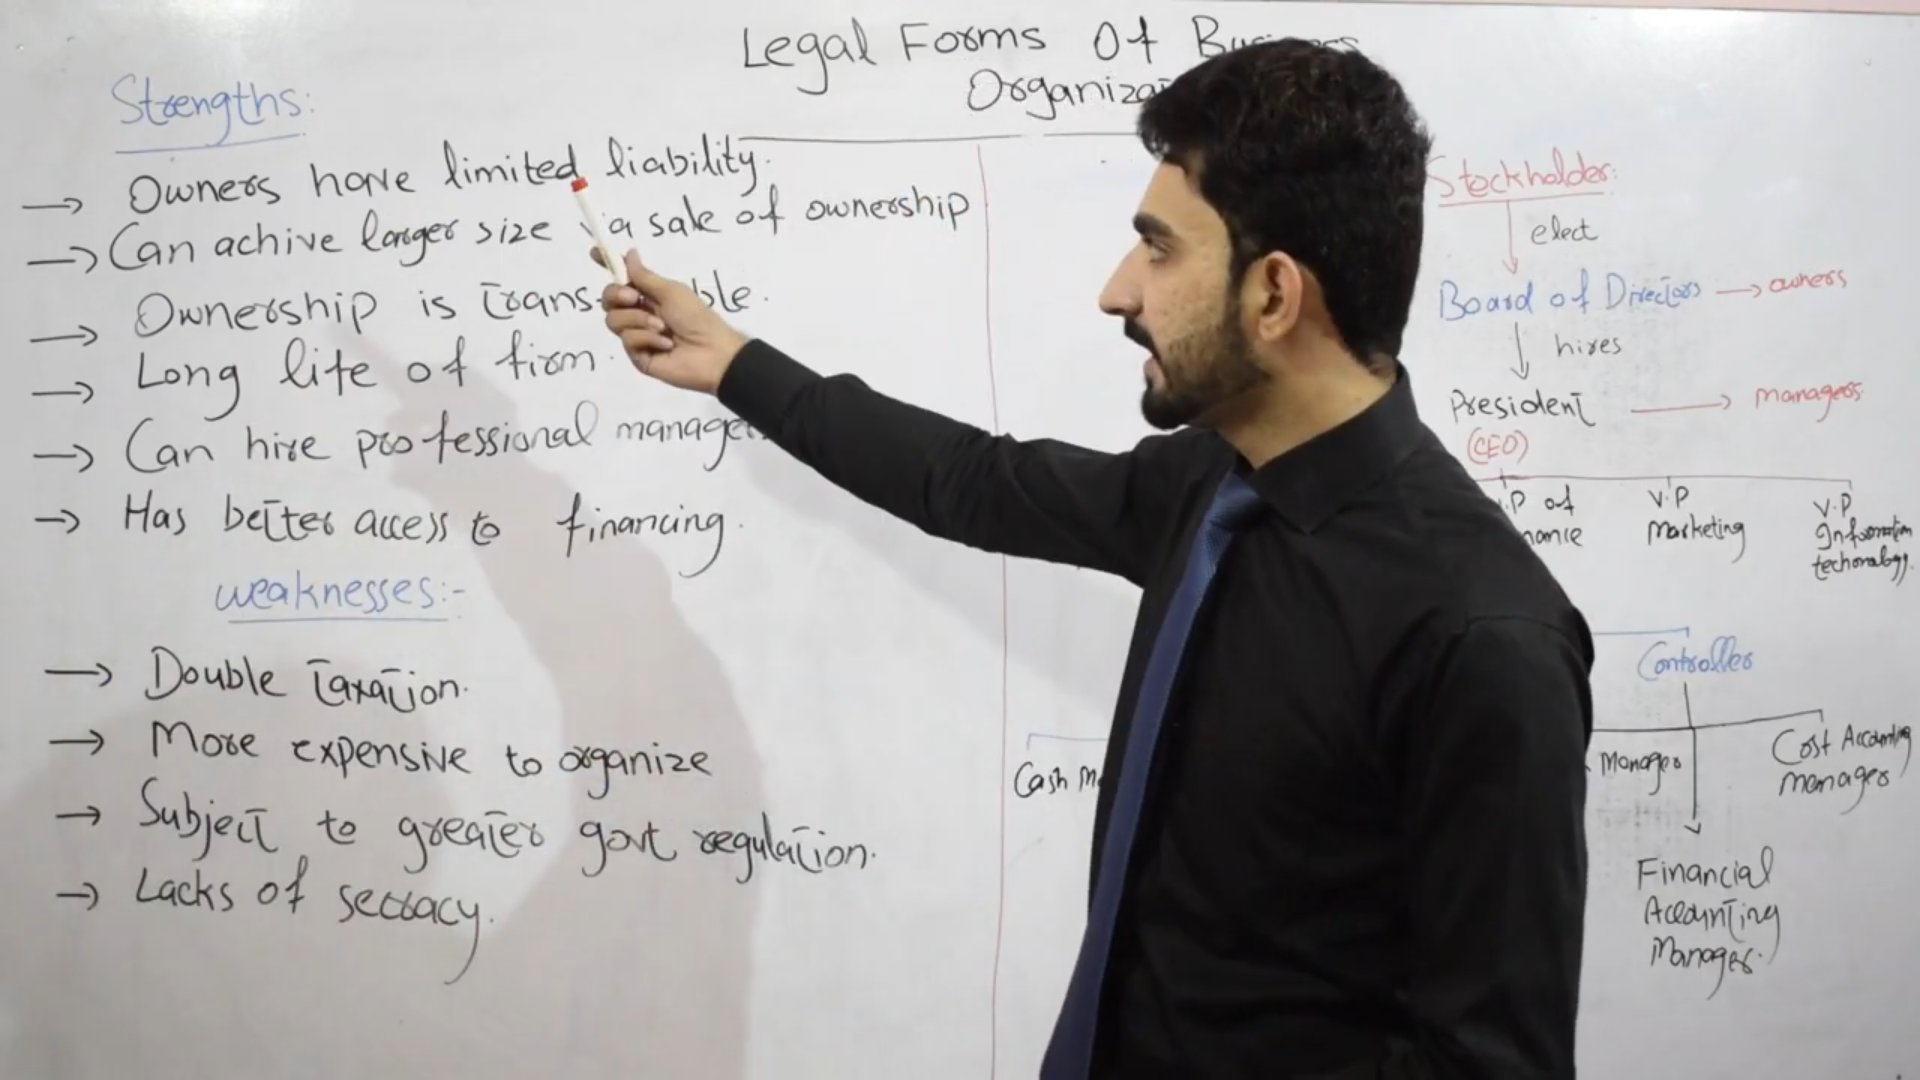 Legal Forms Of
Strengths:
Owners have limited liability.
Can achive larger size sale of ownership
Ownership is
Long life of firm.
Can hire professional
Has better access to financing.
weaknesses:-
Double Taxation.
More expensive to organize
Subject to greater govt regulation.
Lacks of secracy.
Stockholder:
elect
Board of Directors → owners
hires
President → managers
(CEO)
of
V.P
Marketing
V.P
Information
techonology.
Controller
Cash
Manager
Cost Accounting
manager
Financial
Accounting
Manager.